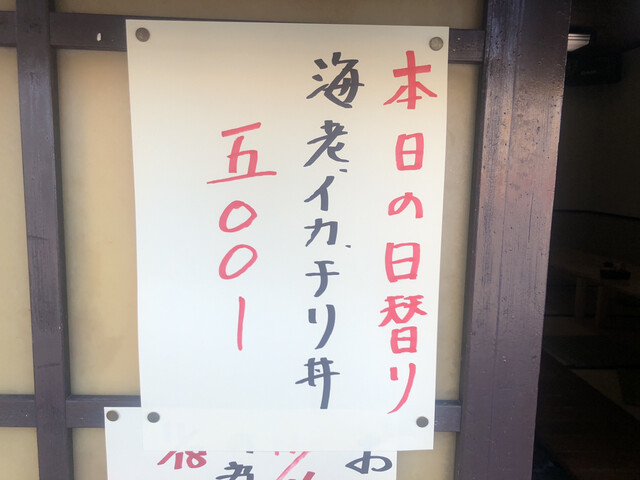 本日の日替り
海老、イカ、チリ丼
五〇〇ー
お